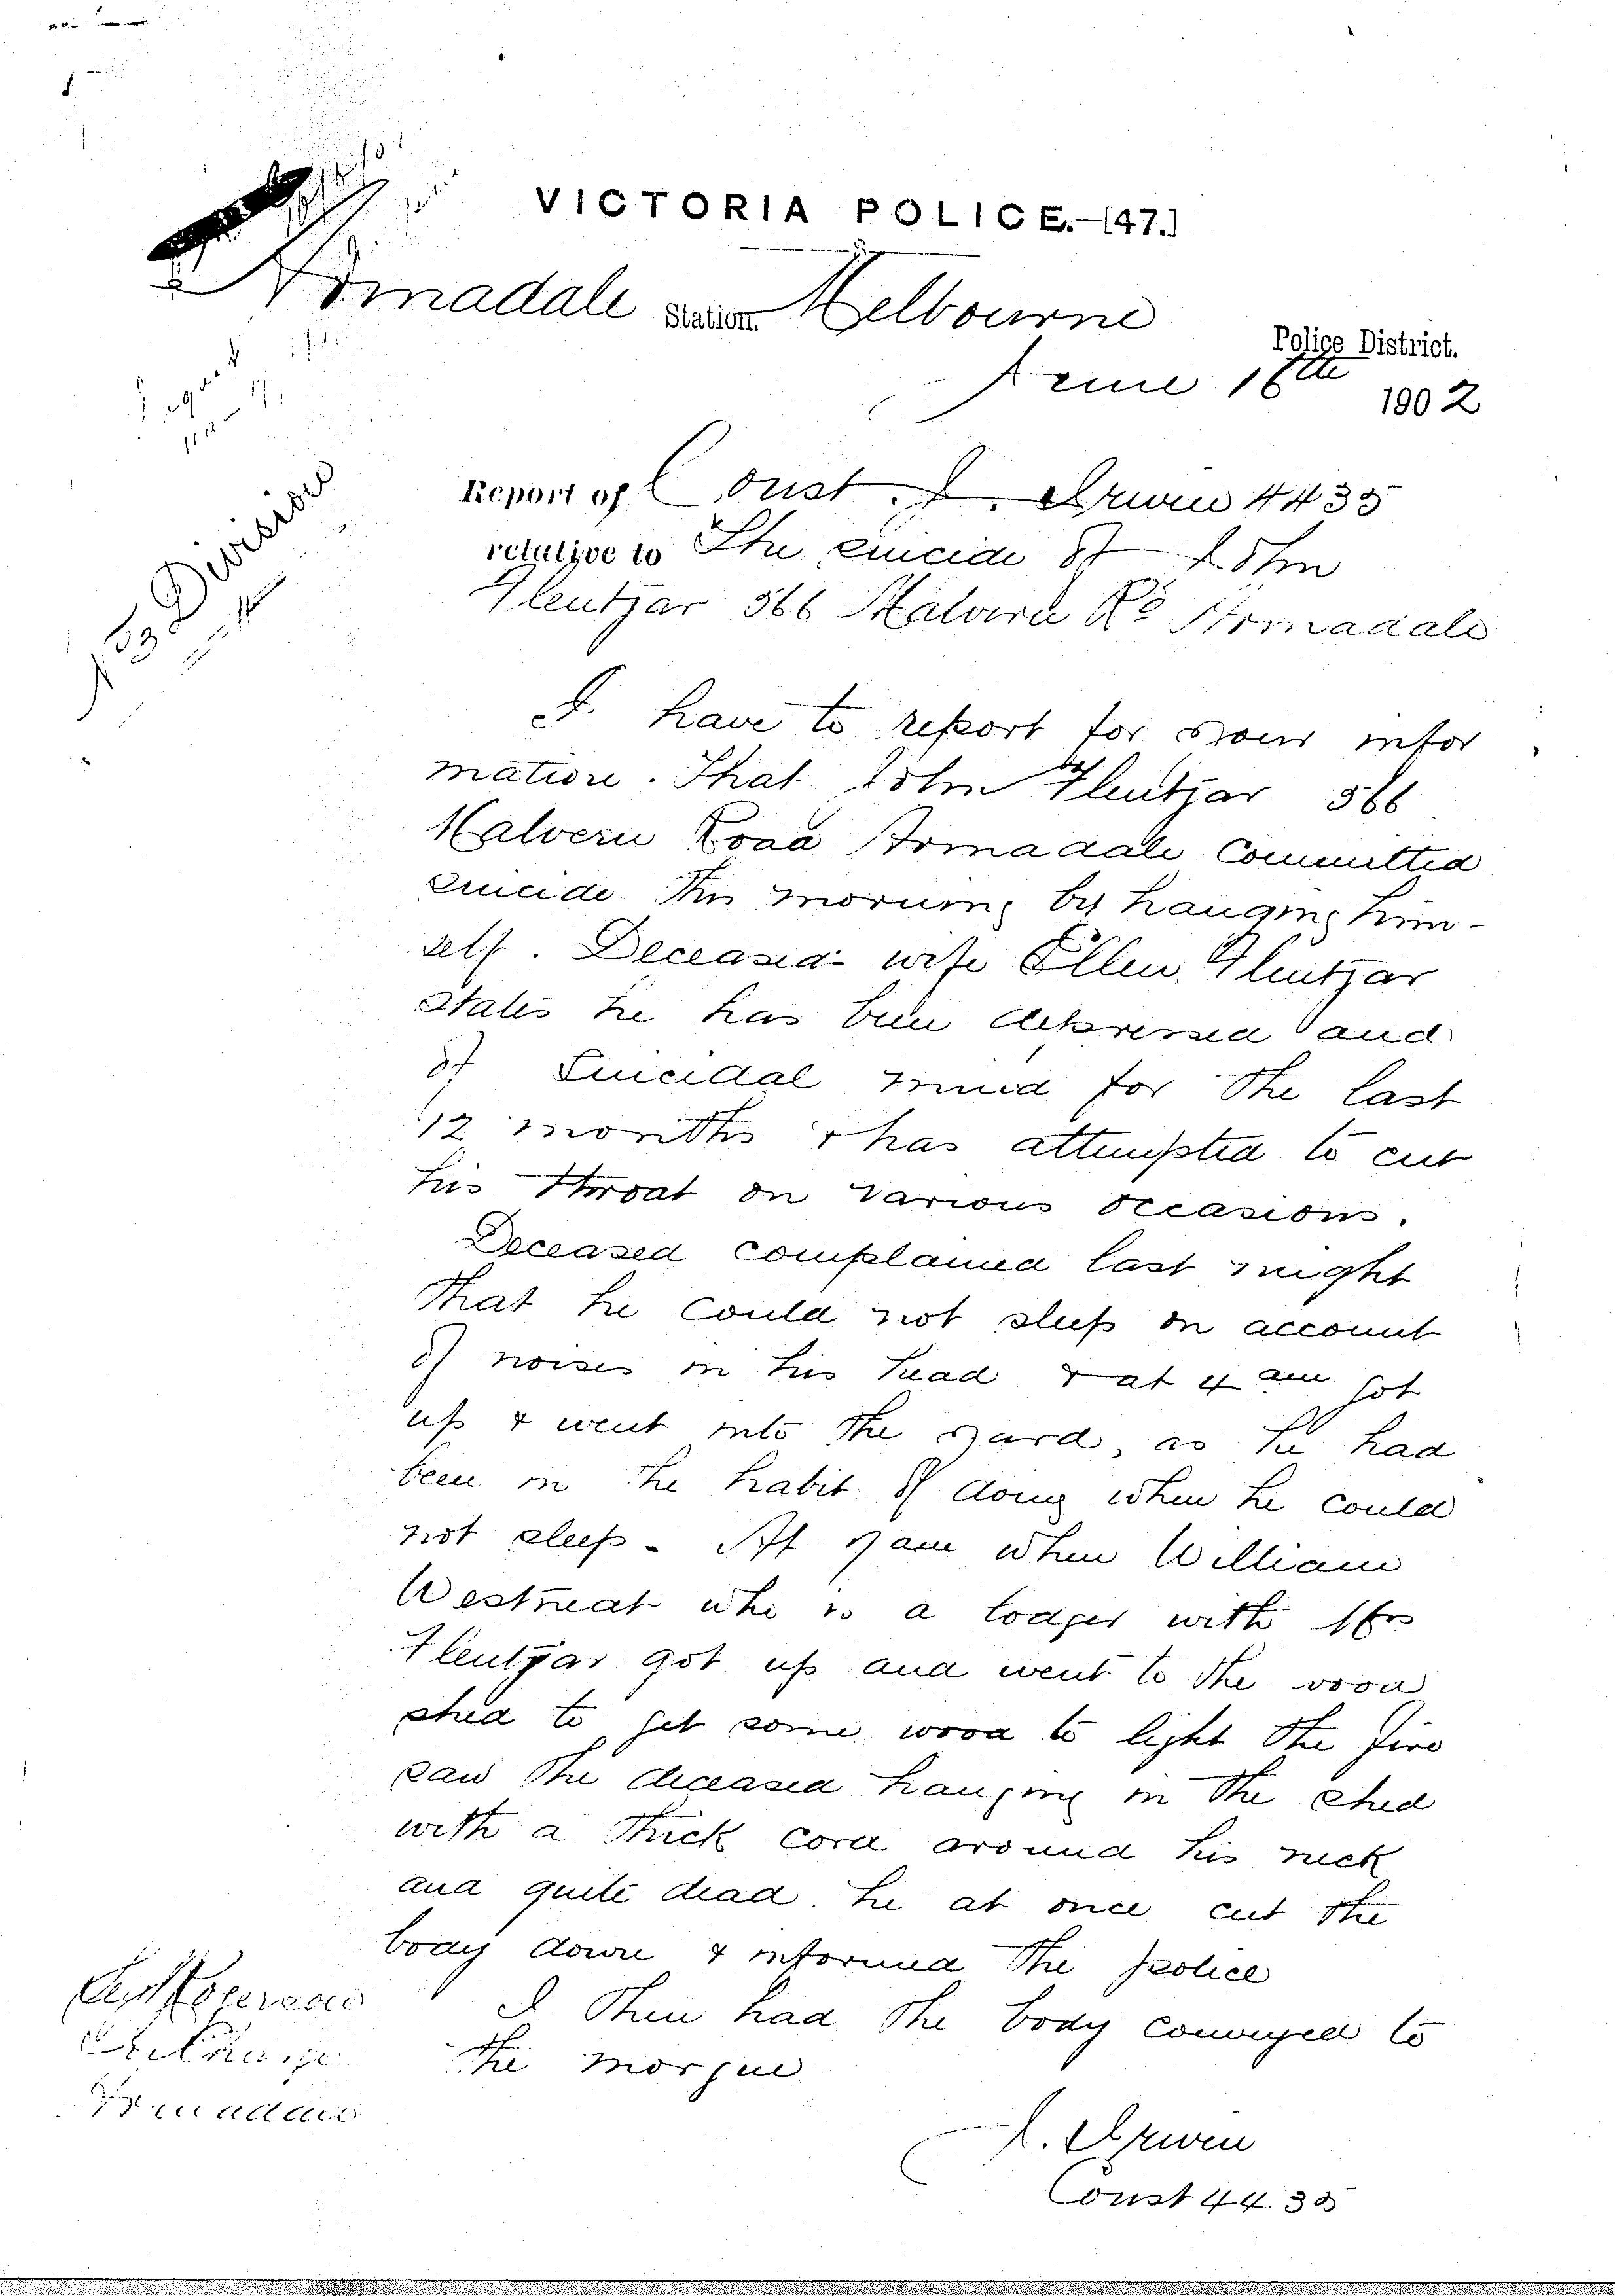 VICTORIA POLICE.—[47.]
Armadale Station. Melbourne
Police District.
June 16th 1902
Report of Const. J. Irwin 4435
relative to The suicide of John
Flentjar 566 Malvern Rd Armadale
Division
I have to report for your infor
mation. That John Flentjar 566
Malvern Road Armadale Committed
suicide this morning by hanging him-
self. Deceased wife Ellen Flentjar
states he has been depressed and
of Suicidal mind for the last
12 months & has attempted to cut
his throat on various occasions.
Deceased complained last night
that he could not sleep on account
of noises in his head & at 4 am got
up & went into the yard, as he had
been in the habit of doing when he could
not sleep. At 7 am when William
Westneat who is a lodger with Mrs
Flentjar got up and went to the wood
shed to get some wood to light the fire
saw the deceased hanging in the shed
with a thick cord around his neck
and quite dead. he at once cut the
body down & informed the police
I then had the body conveyed to
the morgue
J. Irwin
Const 4435
Armadale